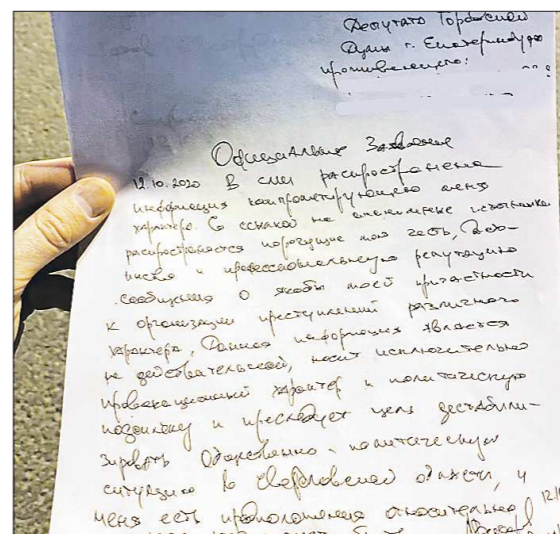 Депутата Городской
Думы г. Екатеринбурга
проживающего:
Официальное Заявление
12.10.2020 В СМИ распространена
информация компрометирующего меня
характера. Со ссылкой на анонимные источники
распространяются порочащие мои честь, досто-
инство и профессиональную репутацию
сообщения о якобы моей причастности
к организации преступлений различного
характера. Данная информация является
не действительной, носит исключительно
провокационный характер и политическую
подоплеку и преследует цель дестабили-
зировать общественно-политическую
ситуацию в Свердловской области, у
меня есть предположения относительно